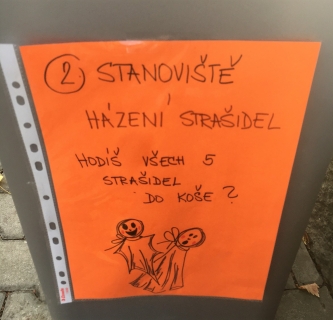 2 STANOVIŠTĚ
HÁZENÍ STRAŠIDEL
HODÍŠ VŠECH 5
STRAŠIDEL
DO KOŠE?